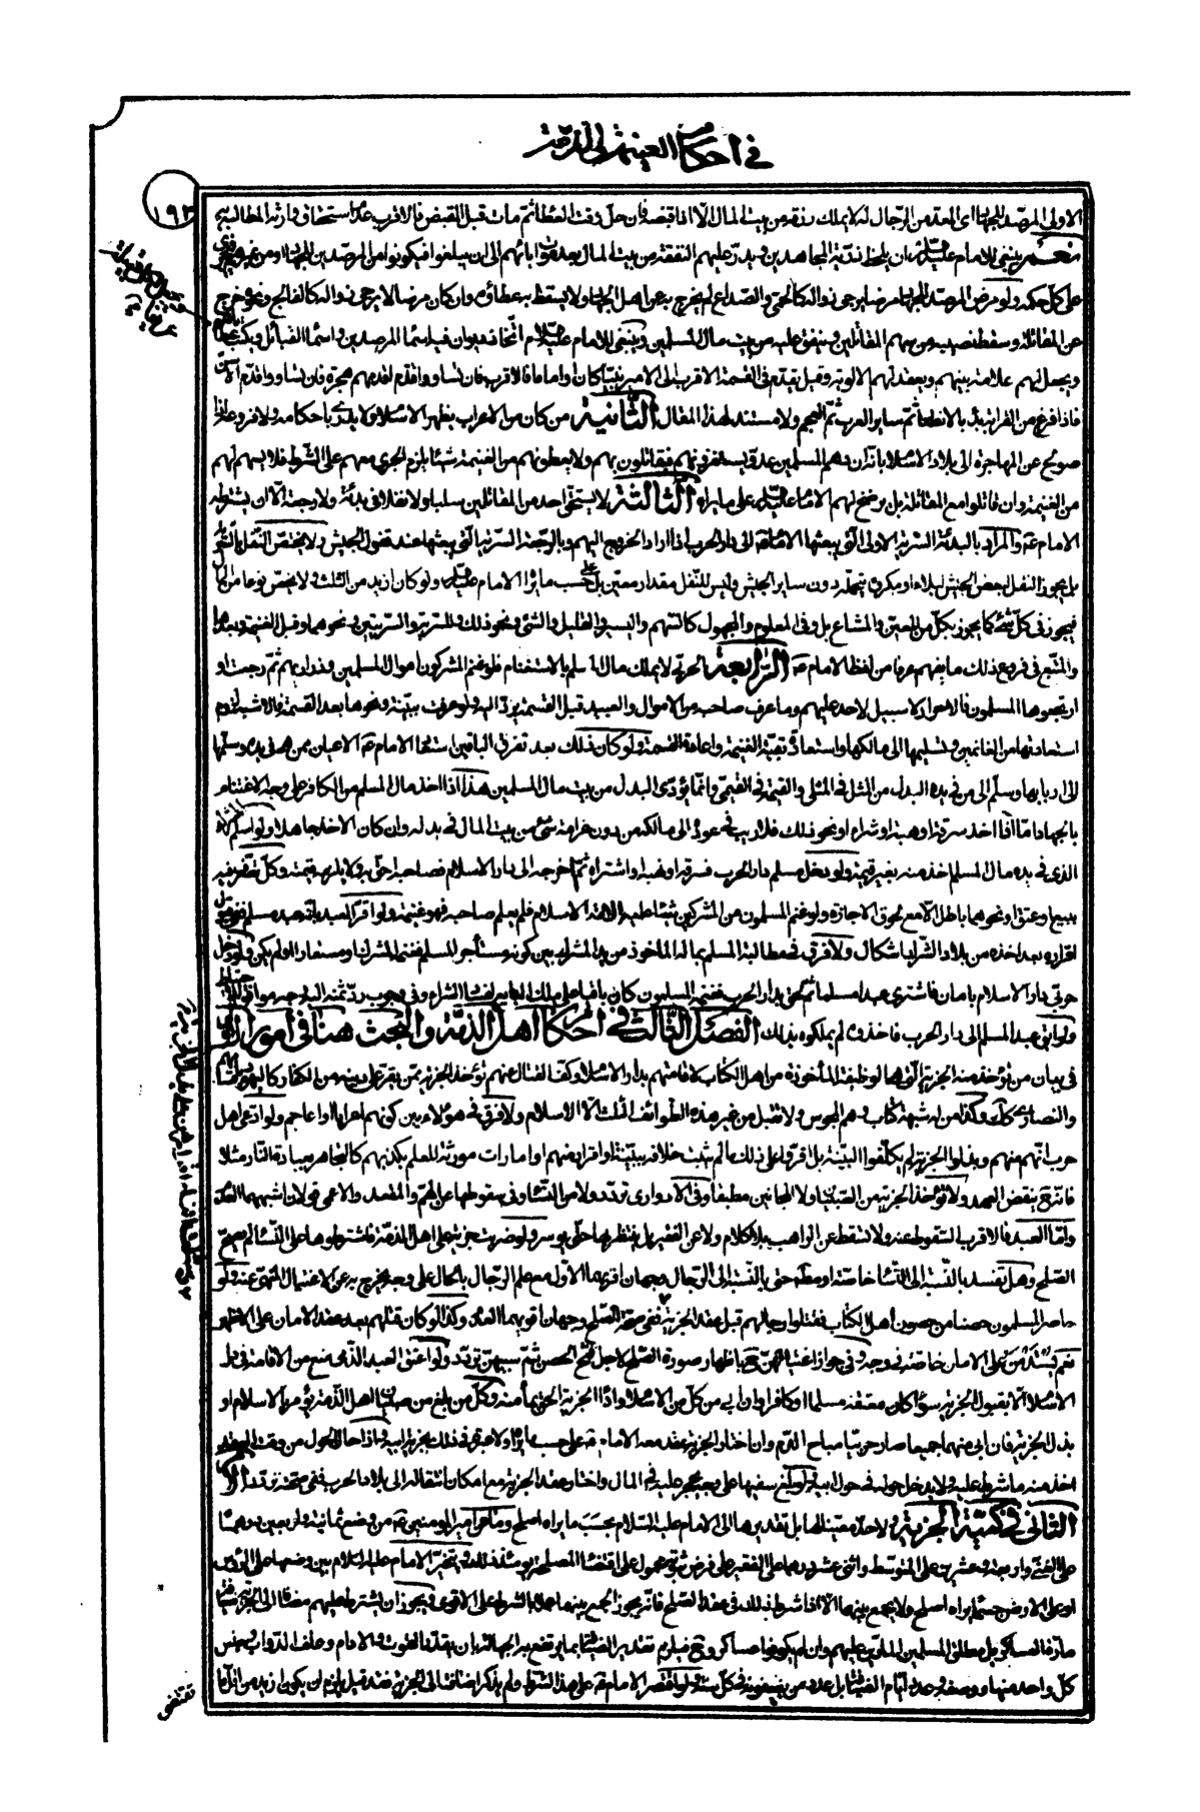 في احكام الغنيمة واهل الذمة
١٩٣
الاولى المرصد للجهاد اى المعد من الرجال له لا يملك رزقه من بيت المال الا اذا قبضه فان حل وقت العطا ثم مات قبل القبض فالاقرب عدم استحقاق وارثه المطالبة
نعم ينبغي للامام عليه السلام ان يلحظ ذرية المجاهدين ويدر عليهم النفقة من بيت المال بعد موت ابائهم الى ان يبلغوا فيكونوا من المرصدين للجهاد او من غيرهم فيجرى
على كل حكمه ولو مرض المرصد للجهاد مرضا يرجى زواله كالحمى والصداع لم يخرج به عن اهل الجهاد ولا يسقط به عطاؤه وان كان مرضا لا يرجى زواله كالفالج ونحوه خرج
عن المقاتلة وسقط نصيبه من سهم المقاتلين وينفق عليه من بيت مال المسلمين وينبغي للامام عليه السلام اتخاذ ديوان فيه اسماء المرصدين واسماء القبائل ويكتب
ويجعل لهم علامة بينهم ويعقد لهم الالوية وقيل يقدم في القسمة الاقرب الى الامير نبيا كان او اماما فالاقرب فان تساووا قدم اقدمهم هجرة فان تساووا قدم الاسن
فاذا فرغ من القرابة بدء بالانصار ثم ساير العرب ثم العجم ولا مستند لهذا المقال الثانية من كان من الاعراب يظهر الاسلام ولا يدرى باحكامه ولا فرو عاذا
صولح عن المهاجرة الى بلاد الاسلام بانه ان دهم المسلمين عدو يستفزونهم فيقاتلون بهم ولا يعطونهم من الغنيمة شيئا يلزم الجرى معهم على الشرط فلا يسهم لهم
من الغنيمة وان قاتلوا مع المقاتلة بل يرضخ لهم الامام عليه السلام على ما يراه الثالثة لا يستحق احد من المقاتلين سلبا ولا نفلا في بدئة ولا رجعة الا ان يشترط له
الامام عم والمراد بالبدئة السرية الاولى التي يبعثها الامام الى دار الحرب اذا اراد الخروج اليهم وبالرجعة السرية التي يبعثها عند قفول الجيش ولا يختص النفل بالسرية
بل يجوز النفل لبعض الجيش لبلاء او مكروه يتحمله دون ساير الجيش وليس للنفل مقدار معين بل على حسب ما يراه الامام عليه السلام ولو كان ازيد من الثلث ولا يختص نوعا من المال
فيجوز في كل شئ كما يجوز بكل من المعين والمشاع بل وفي المعلوم والمجهول كالسهم واليسير والقليل والشئ ونحو ذلك وللسرية والسريتين ونحوهما وقبل الغنيمة وبعدها
والمتبع في فروع ذلك ما يفهم عرفا من لفظ الامام عم الرابعة الحربي لا يملك مال المسلم بالاستغنام فلو غنم المشركون اموال المسلمين وذراريهم ثم رجعت او
ارتجعوها المسلمون فالاحرار لا سبيل لاحد عليهم وما عرف صاحبه من الاموال والعبيد قبل القسمة يرد اليه ولو عرفت ببينة ونحوها بعد القسمة فالاشبه لزوم
استعادتها من الغانمين وتسليمها الى مالكها واستعادة بقية الغنيمة واعادة القسمة ولو كان ذلك بعد تفرق الباقين استعاد الامام عم الاعيان ممن هي في يده وسلمها
الى اربابها وسلم الى من في يده البدل من المثل في المثلى والقيمة في القيمي وانما يؤدى البدل من بيت مال المسلمين هذا اذا اخذ مال المسلم من الكافر على وجه الاغتنام
بالجهاد اما اذا اخذ سرقة او هبة او شراء او نحو ذلك فلا ريب في عوده الى مالكه من دون غرامة شئ من بيت المال في بدله وان كان الاخذ جاهلا ولو اسلم
الذى في يده مال المسلم اخذ منه بغير قيمة ولو دخل مسلم دار الحرب فسرقه او نهبه او اشتراه ثم اخرجه الى دار الاسلام فصاحبه احق به ولا يلزمه قيمة وكل تصرف فيه
ببيع او عتق او نحوهما باطل الا مع لحوق الاجازة ولو غنم المسلمون من المشركين شيئا عليه علامة الاسلام فلم يعلم صاحبه فهو غنيمة ولو اقر العبد بانه عبد مسلم
اقراره بعد اخذه من بلاد الشرك اشكال ولا فرق في مطالبة المسلم بماله الماخوذ من يد المشرك بين كونه مستأجر المسلم فغنمه المشرك او مستعار او لم يكن ولو دخل
حربي دار الاسلام بامان فاشترى عبدا مسلما ثم لحق بدار الحرب فغنمه المسلمون كان باقيا على ملك البايع لفساد الشراء وفي وجوب رد ثمنه اليه وجه
ولو ابق عبد المسلم الى دار الحرب فاخذوه لم يملكوه بذلك الفصل الثالث في احكام اهل الذمة والبحث هنا في امور الاول
في بيان من تؤخذ منه الجزية التي هي الوظيفة المأخوذة من اهل الكتاب لاقامتهم بدار الاسلام وكف القتال عنهم تؤخذ الجزية ممن يقر على دينه من الكفار كاليهود
والنصارى كلا وكذا من له شبهة كتاب وهم المجوس ولا تقبل من غير هذه الطوائف الثلث الا الاسلام ولا فرق في هؤلاء بين كونهم اعرابا او اعاجم ولو ادعى اهل
حرب انهم منهم وبذلوا الجزية لم يكلفوا البينة بل اقروا على ذلك ما لم يثبت خلافه ببينة او اقرار منهم او امارات مورثة للعلم بكذبهم كالتجاهر بعبادة النار مثلا
فانه ح ينقض العهد ولا تؤخذ الجزية من الصبيان ولا المجانين مطبقا وفي الادوارى تردد ولا من النساء وفي سقوطها عن الهم والمقعد والاعمى قولان اشبههما العدم
واما العبد فالاقرب السقوط عنه ولا تسقط عن الراهب بلا كلام ولا عن الفقير بل ينتظر بها حتى يوسر ولو ضربت جزية على اهل الذمة فاشترطوها على النساء لم يصح
الصلح وهل تفسد بالنسبة الى النساء خاصة او مطلقا حتى بالنسبة الى الرجال وجهان اقربهما الاول مع علم الرجال بالحال على وجه يخرج به عن الاغتيال المنهى عنه ولو
حاصر المسلمون حصنا من حصون اهل الكتاب فقتلوا رجالهم قبل عقد الجزية ففي صحة الصلح وجهان اقويهما العدم وكذا لو كان قتلهم بعد عقد الامان على الاظهر
نعم على الامان خاصة في وجه وفي جواز اغتيالهن ح باظهار صورة الصلح لاجل فتح الحصن ثم سبيهن تردد ولو اعتق العبد الذمى منع من الاقامة في دار
الاسلام الا بقبول الجزية سواء كان معتقه مسلما او كافرا وان ابى من كل من الاسلام واداء الجزية الحق بمأمنه وكل من بلغ من صبيان اهل الذمة يؤمر بالاسلام او
بذل الجزية فان ابى منهما جميعا صار حربيا مباح الدم وان اختار الجزية عقد معه الامام عم على حسب ما يراه ولا عبرة في ذلك بجزية ابيه فاذا حال الحول من وقت العقد
اخذ منه ما شرط عليه ولا يدخل حوله في حول ابيه ولو بلغ سفيها على وجه يحجر عليه في المال واختار عقد الجزية مع امكان انتقاله الى بلاد الحرب ففي صحته تردد
الثاني في كمية الجزية ولا حد معينا لها بل تقديرها الى الامام عليه السلام بحسب ما يراه اصلح وما قرره امير المومنين عم من وضع ثمانية واربعين درهما
على الغني واربعة وعشرين على المتوسط واثنى عشر درهما على الفقير على فرض ثبوته محمول على اقتضاء المصلحة يومئذ لذلك ويتخير الامام عليه السلام بين وضعها على الرؤس
او على الارض حسبما يراه اصلح ولا يجمع بينهما الا اذا شرط ذلك في عقد الصلح فانه يجوز الجمع بينهما عملا بالشرط على الاقوى ويجوز ان يشترط عليهم مضافا الى الجزية ضيافة
مارة العساكر بل مطلق المسلمين المارين عليهم وان لم يكونوا عساكر وح فيلزم تقدير الضيافة بما يرتفع به الجهالة بان يقدر القوت والادام وعلف الدواب وجنس
كل واحد منها ووصفه وعدد ايام الضيافة بل عدد من يضيفونه في كل سنة ولو اقتصر الامام عم على هذا الشرط ولم يذكر اضافة الى الجزية فقد قيل يلزم ان يكون ازيد من اقل ما
تقتضى